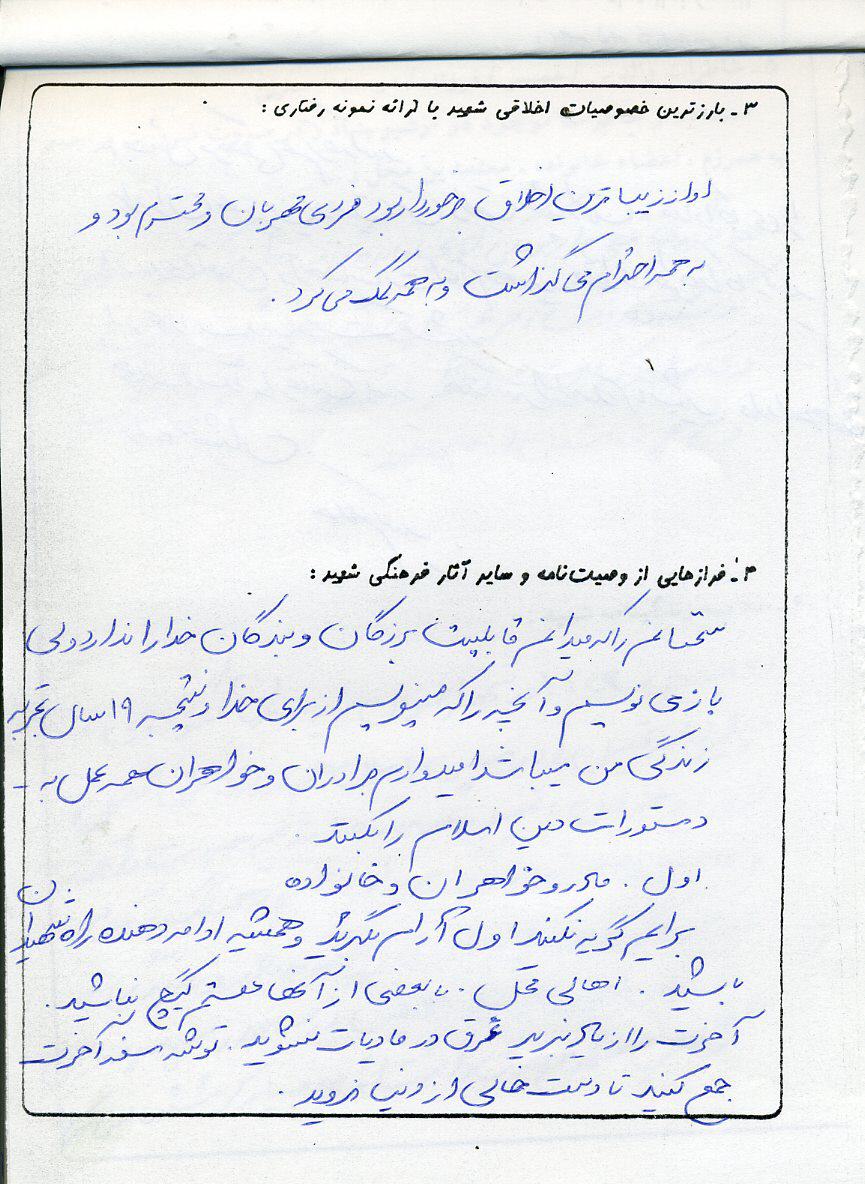 ۳ - بارزترین خصوصیات اخلاقی شهید با ارائه نمونه رفتاری :
او از زیباترین اخلاق برخوردار بود فردی مهربان و محترم بود و
به همه احترام می گذاشت و به همه کمک می کرد .
۴ - فرازهایی از وصیت نامه و سایر آثار فرهنگی شهید :
سخنانم را که میدانم قابلیت بزرگان و بندگان خدا را ندارد ولی
باز می نویسم و آنچه را که مینویسم از برای خدا و نتیجه ۱۹ سال تجربه
زندگی من میباشد امیدوارم برادران و خواهران همه عمل به -
دستورات دین اسلام را بکنند .
اول . مادر و خواهران و خانواده
برایم گریه نکنند اول آرام بگیرید و همیشه ادامه دهنده راه شهیدان
باشید . اهالی محل . با بعضی از آنها هستم گیج نباشید .
آخرت را از یاد نبرید غرق در مادیات نشوید . توشه سفر آخرت
جمع کنید تا دست خالی از دنیا نروید .